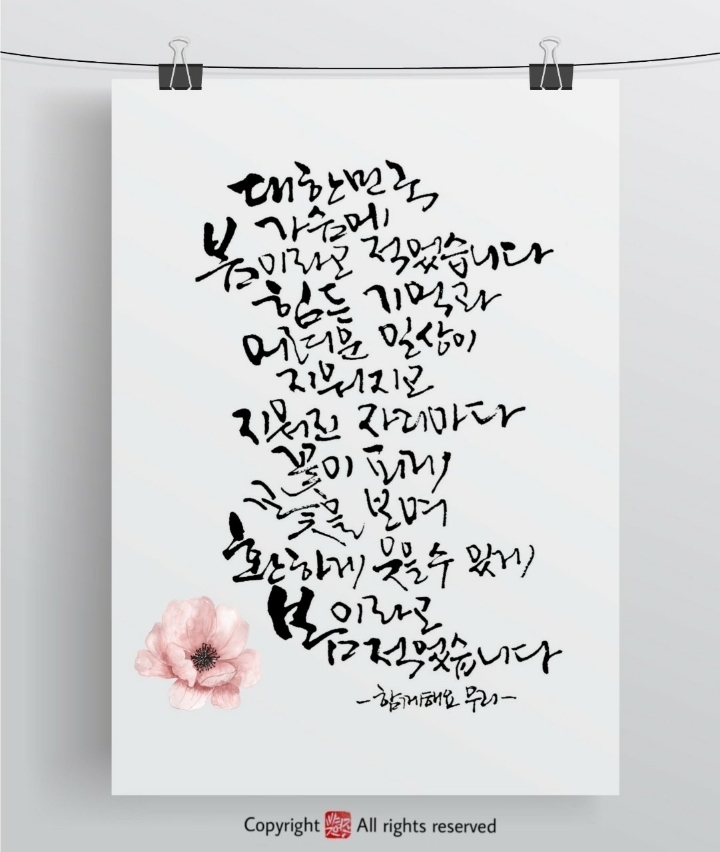 대한민국
가슴에
봄이라고 적었습니다
힘든 기억과
어두운 일상이
지워지고
지워진 자리마다
꽃이 피게
꽃을 보며
환하게 웃을수 있게
봄이라고
적었습니다
-함께해요 우리-
Copyright All rights reserved